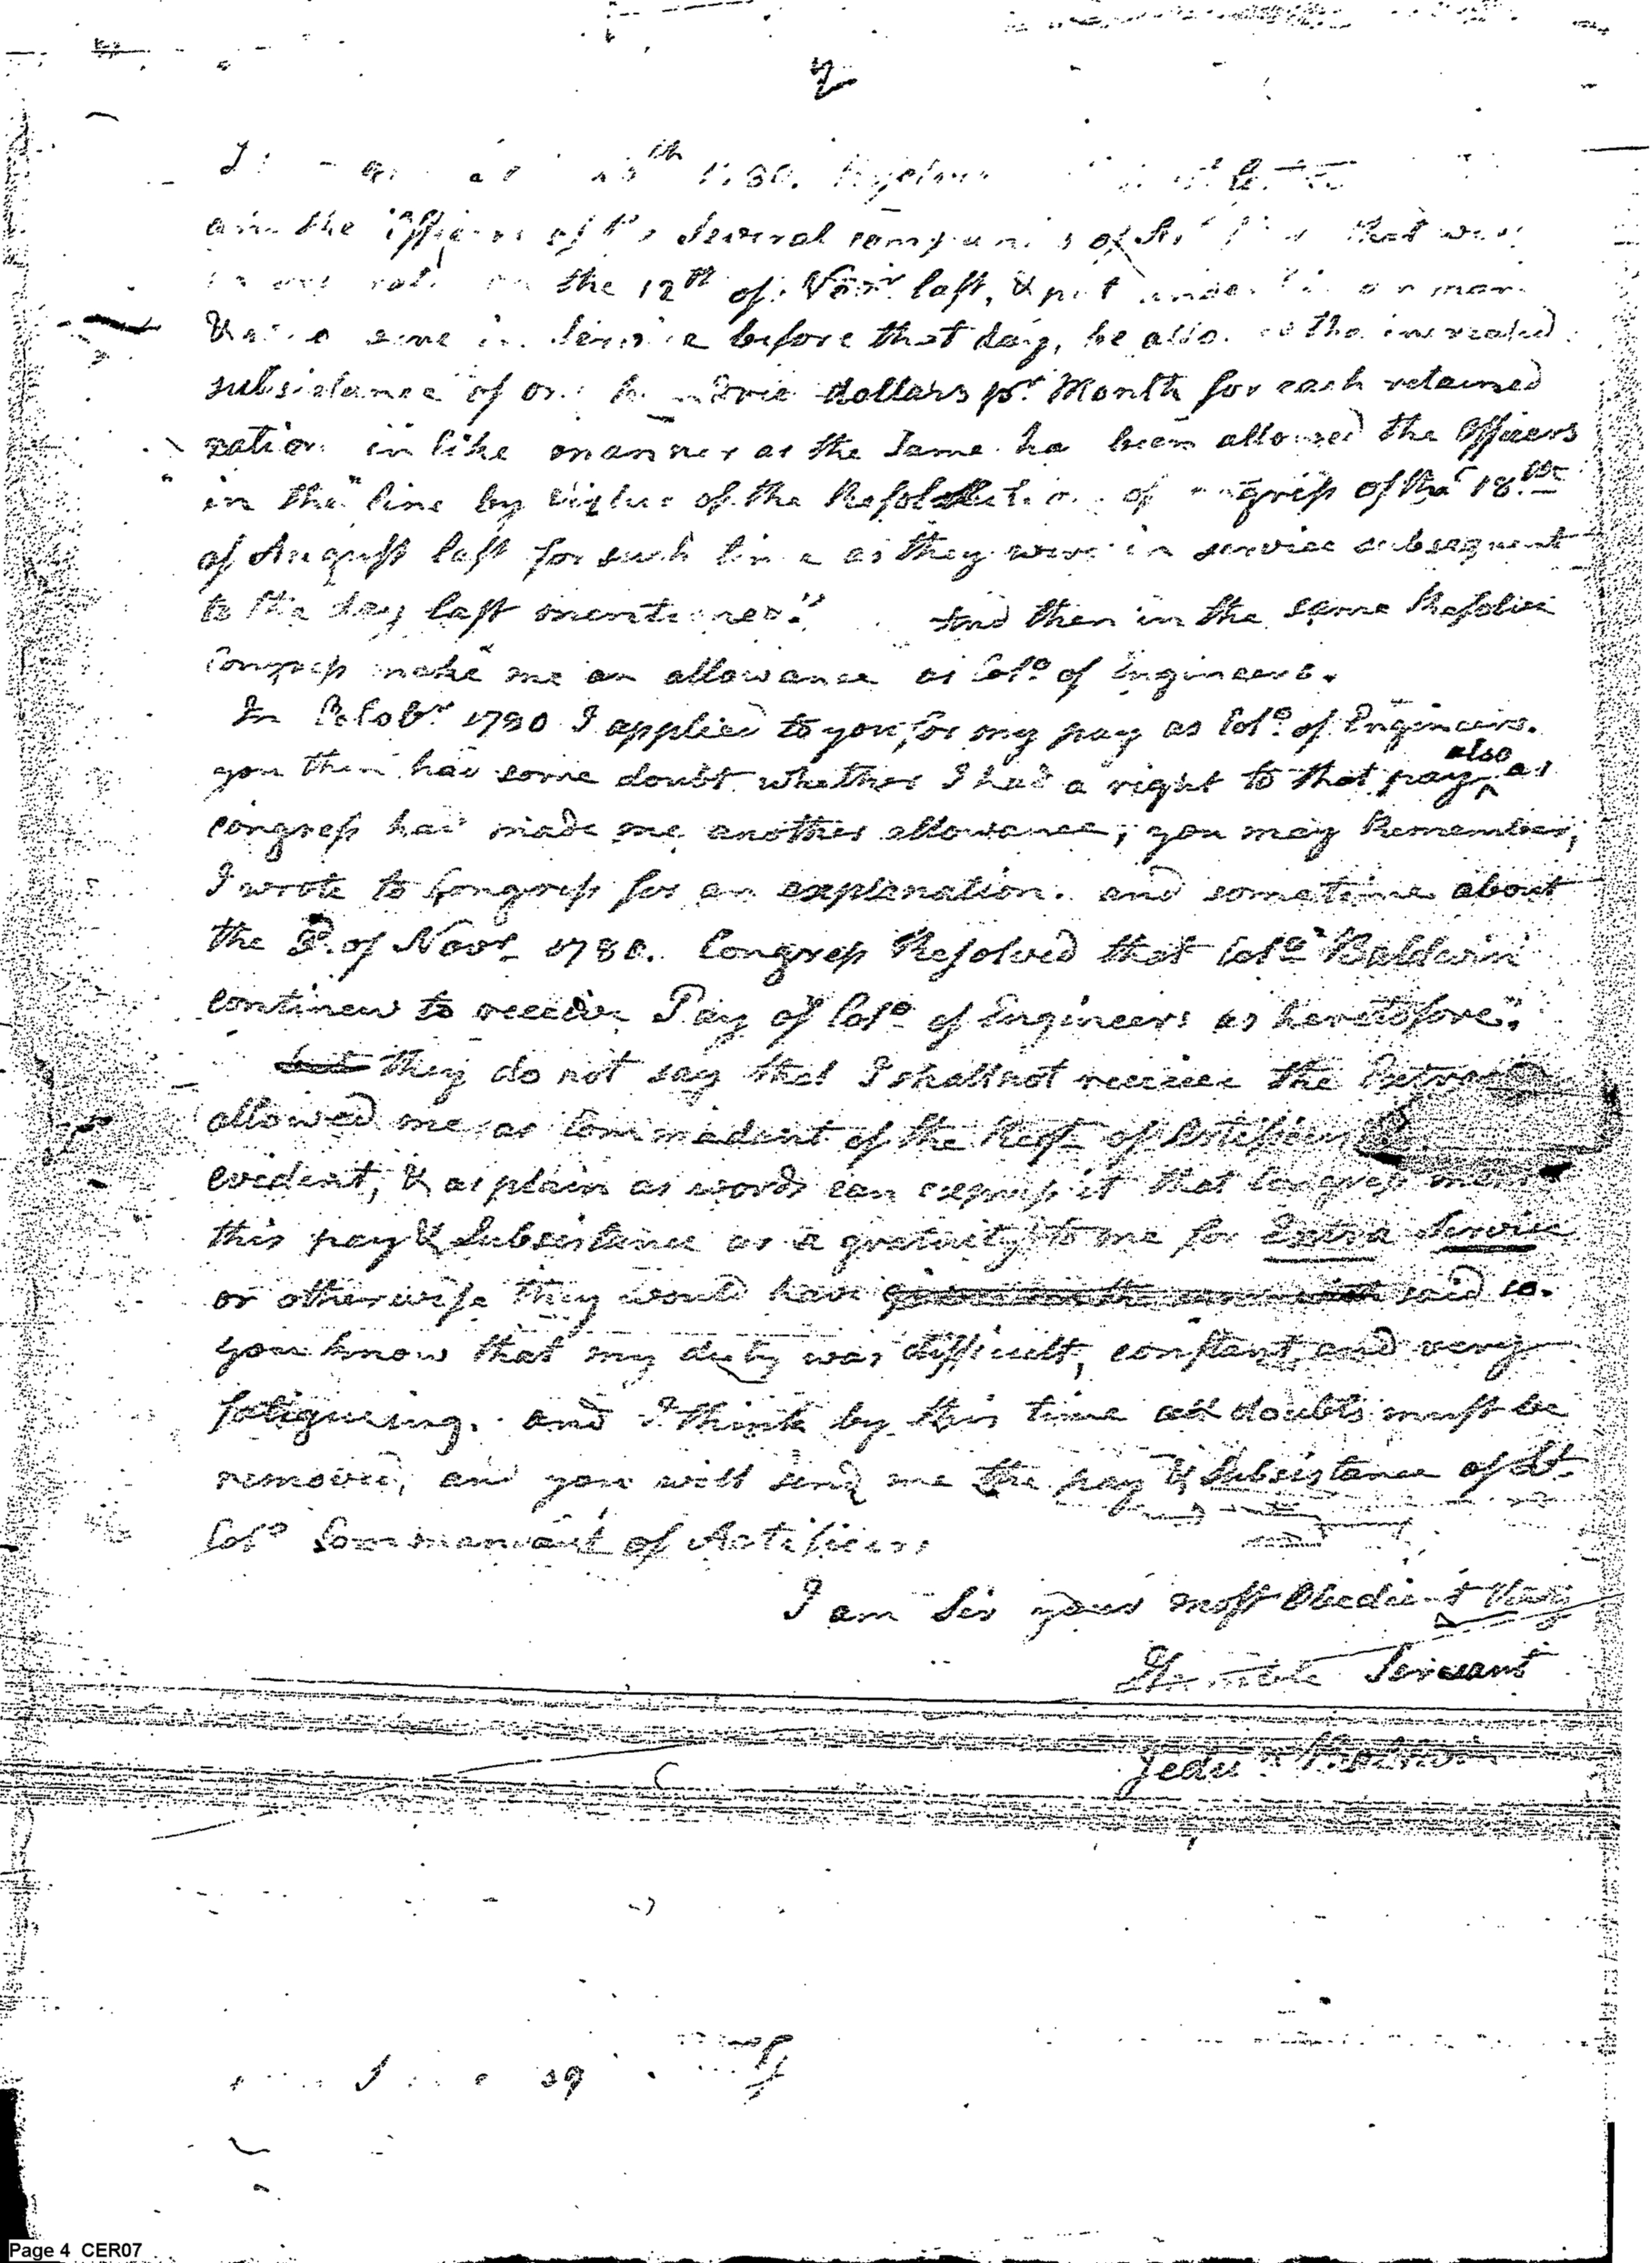 2
th 1780.
the Officers of the several companies of that were
the 12th of Novr last, & put under
& in service before that day, be allowed the increased
subsistance of one hundred dollars pr. Month for each retained
ration in like manner as the same has been allowed the Officers
in the line by virtue of the Resolution of Congress of the 18th
of August last for such time as they were in service subsequent
to the day last mentioned." And then in the same Resolve
Congress make me an allowance as Colo of Engineers.
In Octobr 1780 I applied to you for my pay as Colo of Engineers.
you then had some doubt whether I had a right to that pay also as
congress had made me another allowance, you may Remember,
I wrote to Congress for an explanation. and sometime about
the of Novr 1780. Congress Resolved that Colo "Baldwin
continew to receive Pay of Colo of Engineers as heretofore".
but they do not say that I shall not receive the
allowed me as Commadent of the Regt of Artificers
evident, & as plain as words can express it that Congress ment
this pay & Subsistence as a gratuity to me for Extra Service
or otherwise they would have said so.
you know that my duty was difficult, constant and very
fatigueing. and I think by this time all doubts must be
removed, and you will send me the pay & Subsistance of Lt
Colo Commandant of Artificers
I am Sir your most Obedient & Very
Humble Servant
Jeduthn Baldwin
Page 4 CER07